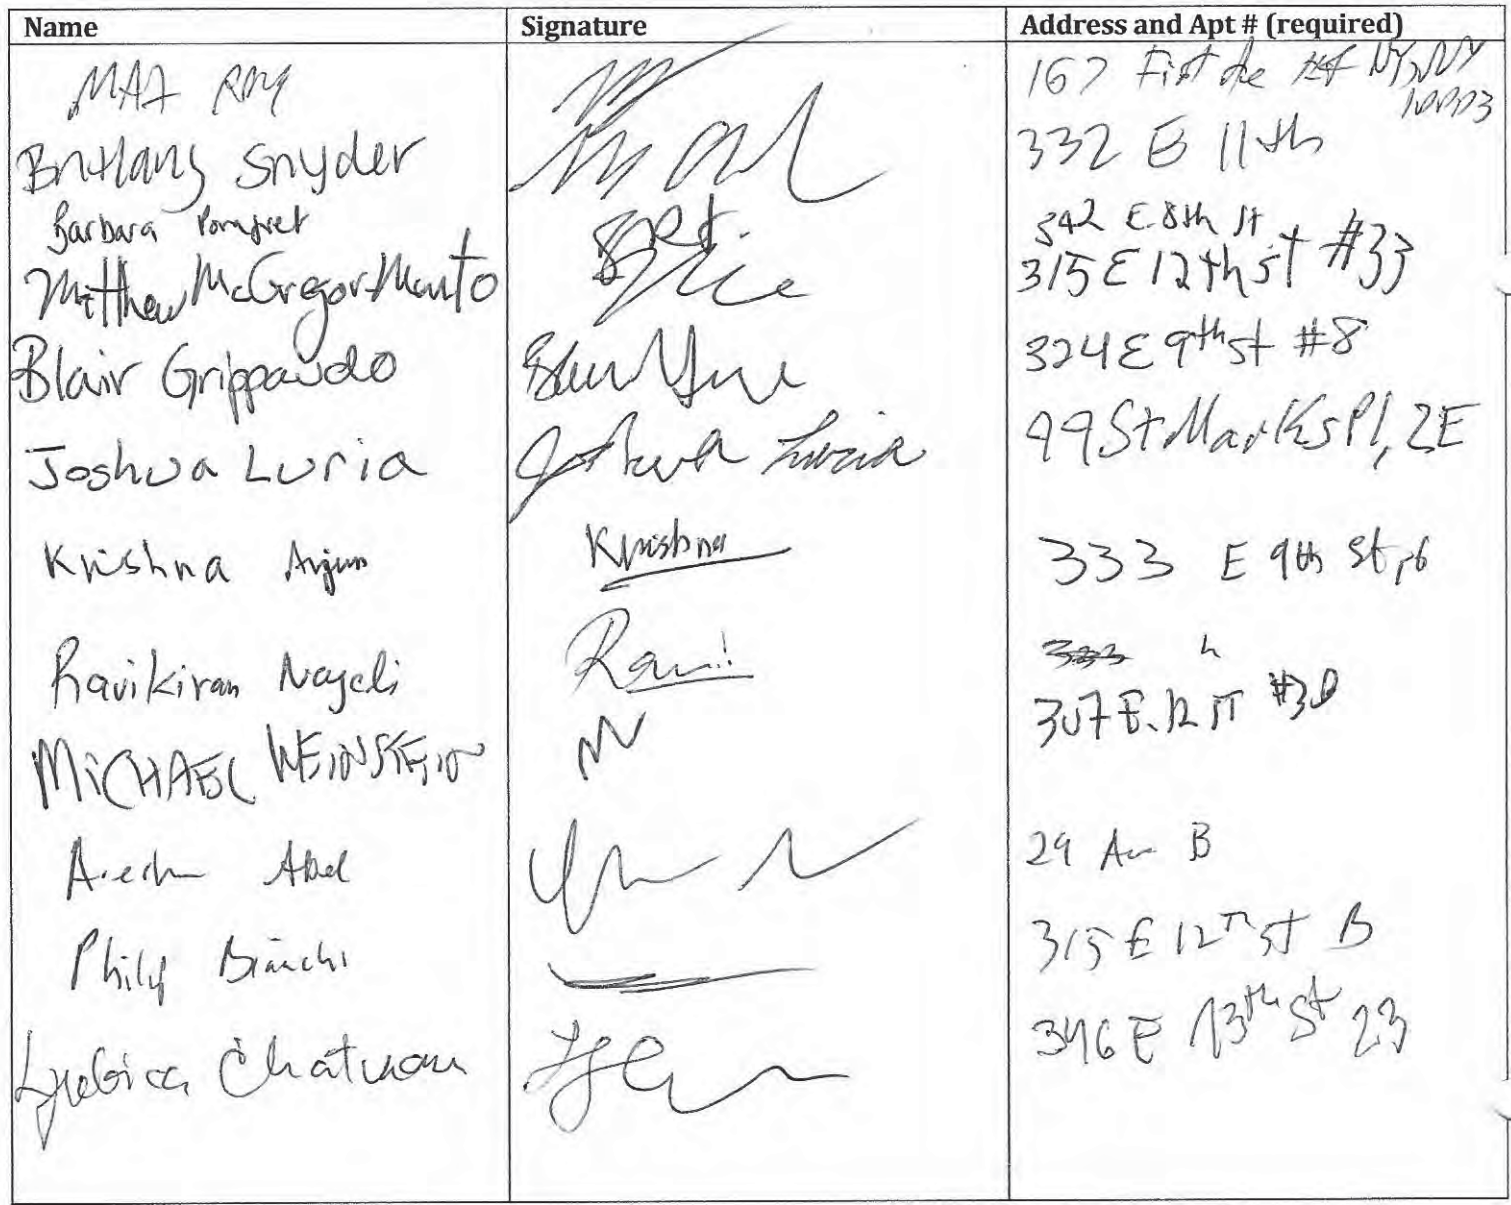 Name Signature Address and Apt # (required)
167 First Ave NY, NY
10003
Brittany Snyder 332 E 11th
Barbara 342 E 8th St
Matthew McGregor-Mento 315 E 12th st #33
Blair Grippaudo 324 E 9th st #8
Joshua Luria Joshua Luria 99 St Marks Pl, 2E
Krishna Arjun Krishna 333 E 9th St
Ravikiran Ravi 333
MICHAEL WEINSTEIN 307 E. 12 ST
Abel 29 Av B
Philip Bianchi 315 E 12TH st B
Ljubica Chatman 346 E 13th St 23